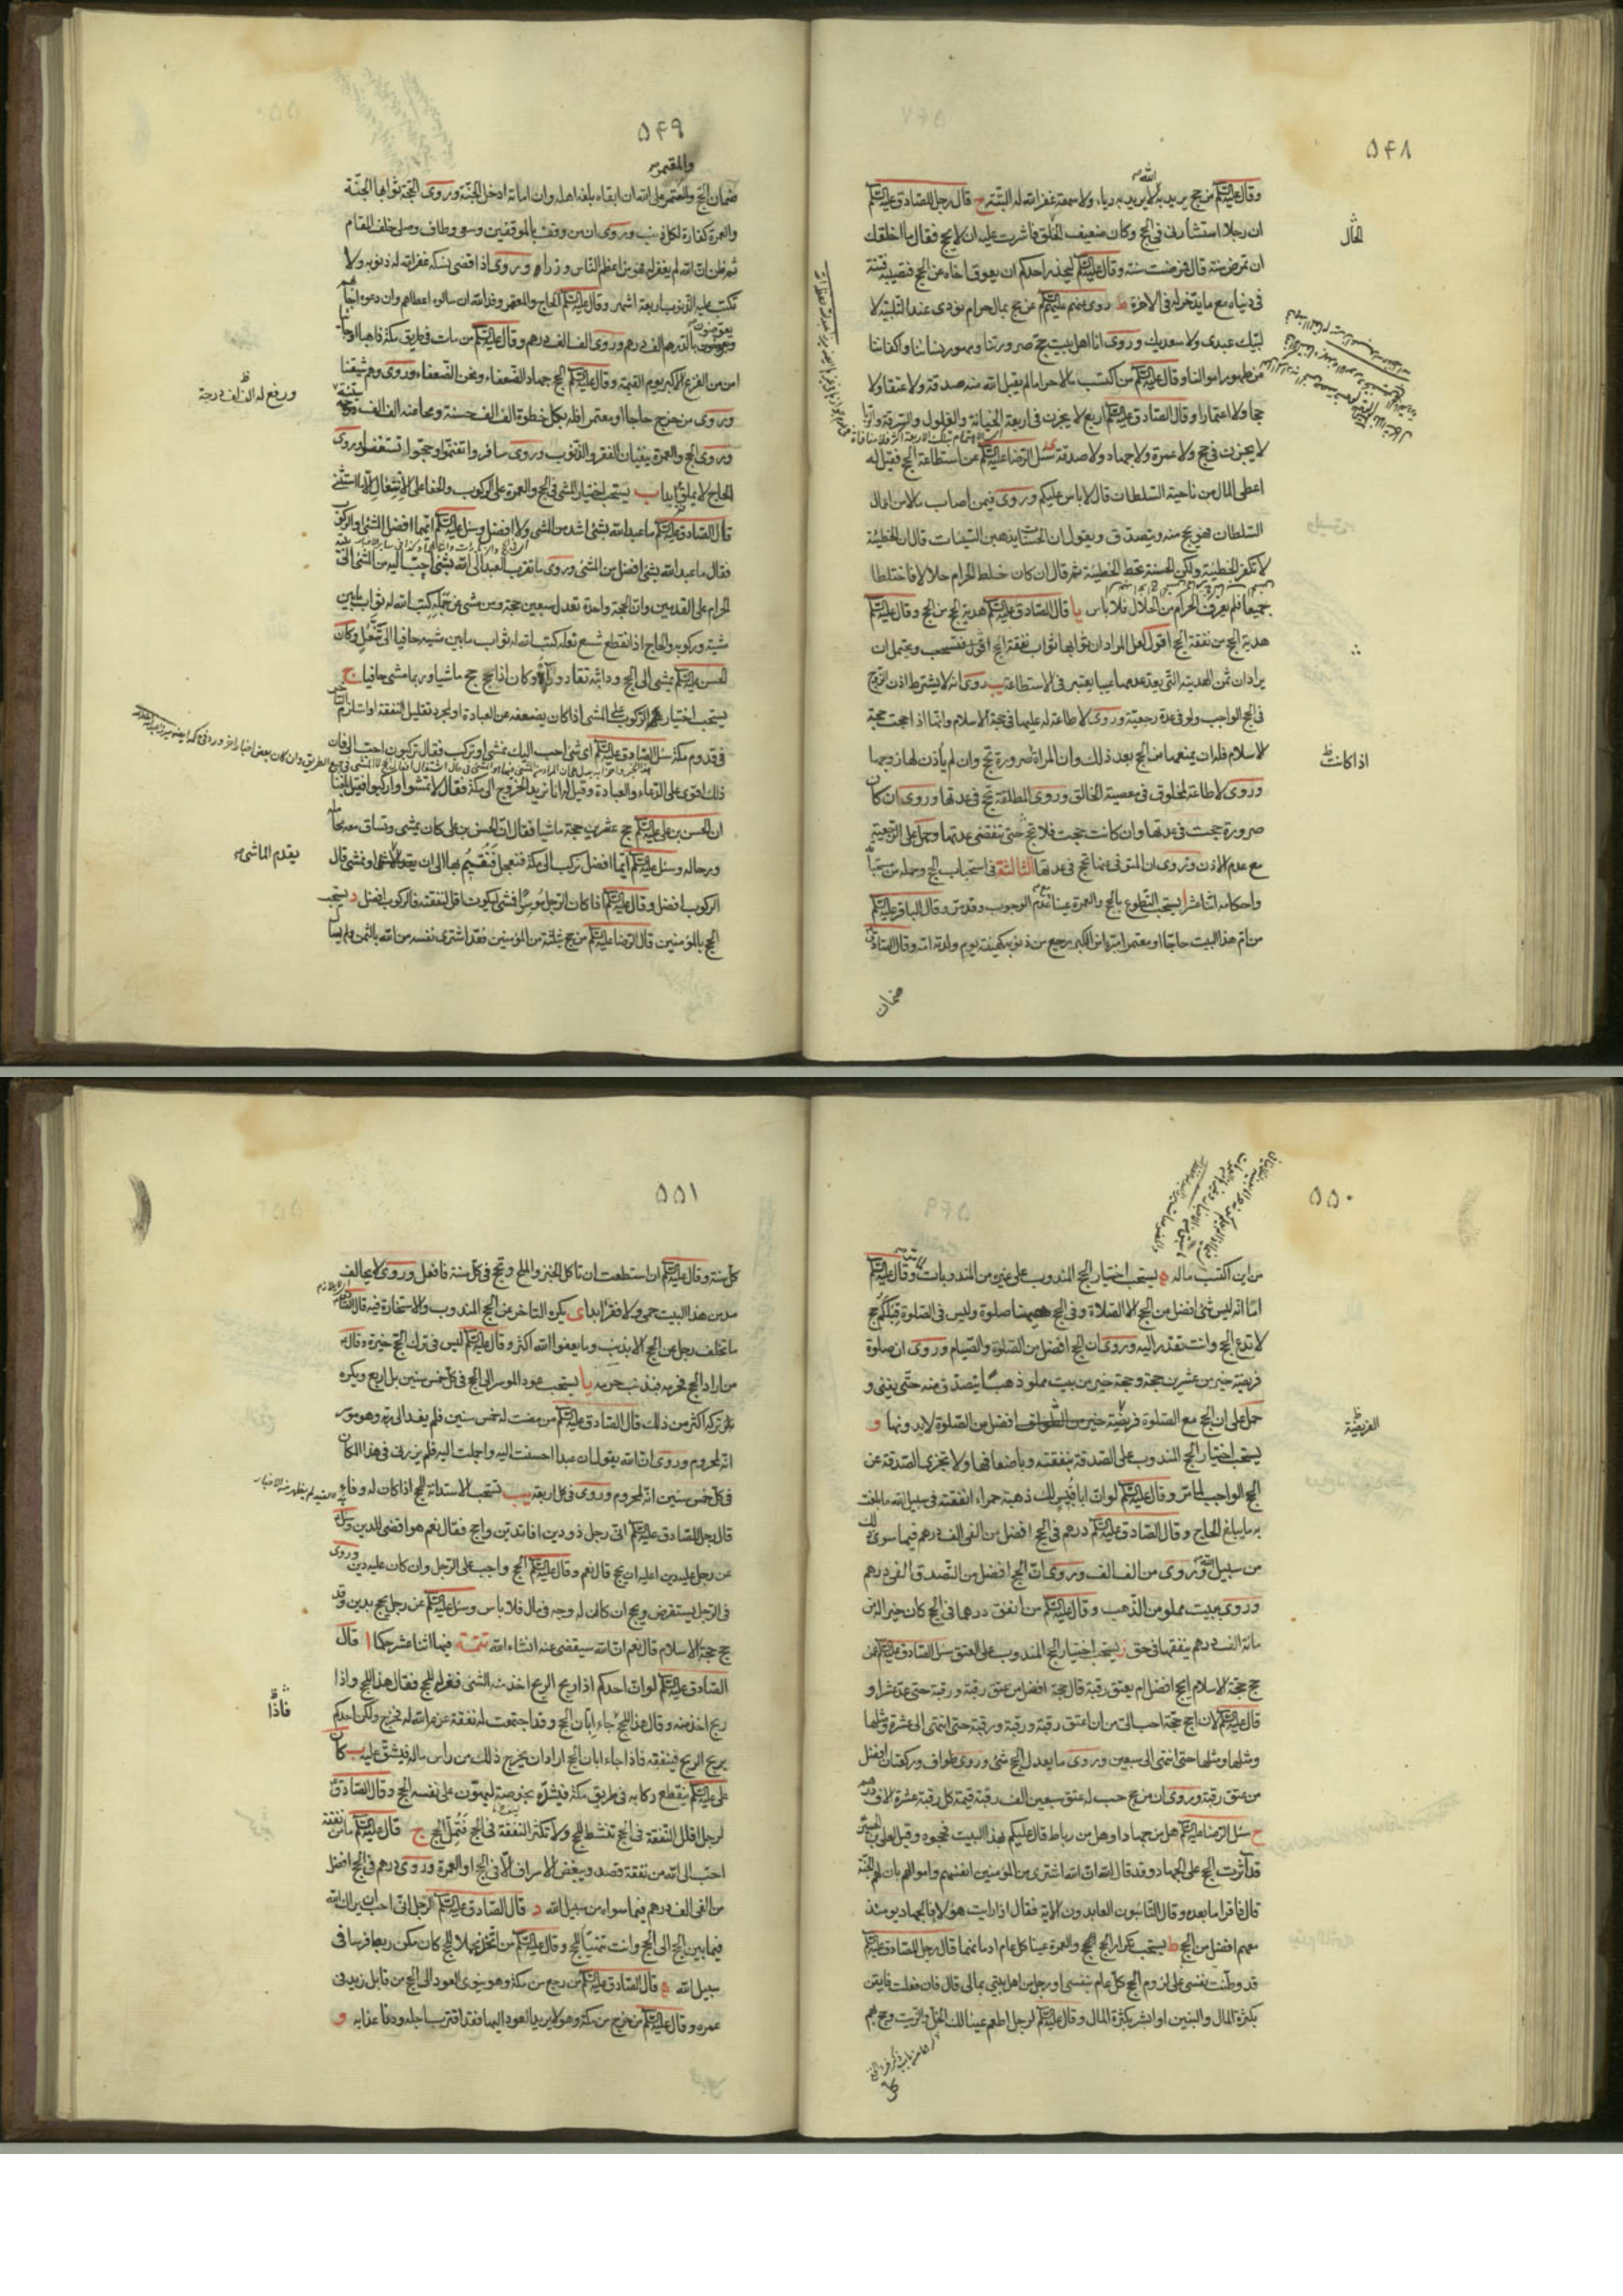 ۵۴۸
وقال عليه السلام من حج يريد به الله لا يريد به رياء ولا سمعة غفر الله له البتة ح قال رجل للصادق عليه السلام
ان رجلا استشارنى فى الحج وكان ضعيف الخلق فاشرت عليه ان لا يحج فقال ما اخلقك
ان تمرض سنة قال فمرضت سنة وقال عليه السلام ليحذر احدكم ان يعوق اخاه عن الحج فتصيبه فتنة
فى دنياه مع ما يدّخر له فى الاخرة ط روى عنهم عليهم السلام من حج بمال حرام نودى عند التلبية لا
لبيك عبدى ولا سعديك وروى انا اهل بيت حج صرورتنا ومهور نسائنا واكفاننا
من طهور اموالنا وقال عليه السلام من اكتسب مالا حراما لم يقبل الله منه صدقة ولا عتقا ولا
حجا ولا اعتمارا وقال الصادق عليه السلام اربع لا يجزن فى اربعة الخيانة والغلول والسرقة والربا
لا يجزن فى حج ولا عمرة ولا جهاد ولا صدقة ى سئل الرضا عليه السلام عن استطاعة الحج فقيل له
اعطى المال من ناحية السلطان قال لا باس عليكم وروى فيمن اصاب مالا من اعمال
السلطان فهو يحج منه ويتصدق ويقول ان الحسنات يذهبن السيئات قال ان الخطيئة
لا تكفر الخطيئة ولكن الحسنة تحط الخطيئة ثم قال ان كان خلط الحرام حلالا فاختلطا
جميعا فلم يعرف الحرام من الحلال فلا باس يا قال الصادق عليه السلام هدية الحج من الحج وقال عليه السلام
هدية الحج من نفقة الحج اقول لعل المراد ان ثوابها ثواب نفقة الحج اقول فتستحب ويحتمل ان
يراد ان ثمن الهدية التى يعد عدمها عيبا يعتبر فى الاستطاعة يب روى انه لا يشترط اذن الزوج
فى الحج الواجب ولو فى عدة رجعية وروى لا طاعة له عليها فى حجة الاسلام وانها اذا حجت حجة
الاسلام فله ان يمنعها من الحج بعد ذلك وان المراة صرورة تحج وان لم ياذن لها زوجها
وروى لا طاعة لمخلوق فى معصية الخالق وروى المطلقة تحج فى عدتها وروى ان كان
صرورة حجت فى عدتها وان كانت حجت فلا تحج حتى تنقضى عدتها وحمل على الرجعية
مع عدم الاذن وروى ان المتوفى عنها تحج فى عدتها الثالثة فى استحباب الحج وجملة من مستحباته
واحكامه اثنا عشر ا يستحب التطوع بالحج والعمرة عينا تقدم الوجوب وقد مر وقال الباقر عليه السلام
من ام هذا البيت حاجا او معتمرا مبرءا من الكبر رجع من ذنوبه كهيئة يوم ولدته امه وقال الصادق
ضمان
الحال
اذا كانت
۵۴۹
ضمان الحج والعمرة على الله ان ابقاه بلغه اهله وان اماته ادخل الجنة وروى الحجة ثوابها الجنة
والعمرة كفارة لكل ذنب وروى ان من وقف بالموقفين وسعى وطاف وصلى خلف المقام
ثم ظن ان الله لم يغفر له فهو من اعظم الناس وزرا وروى اذا قضى نسكه غفر الله له ذنوبه ولا
تكتب عليه الذنوب اربعة اشهر وقال عليه السلام الحاج والمعتمر وفد الله ان سالوه اعطاهم وان دعوه اجابهم
ويعوضون بالدرهم الف درهم وروى الف الف درهم وقال عليه السلام من مات فى طريق مكة ذاهبا او جائيا
امن من الفزع الاكبر يوم القيمة وقال عليه السلام الحج جهاد الضعفاء ونحن الضعفاء وروى وهم شيعتنا
وروى من خرج حاجا او معتمرا فله بكل خطوة الف الف حسنة ومحا عنه الف الف سيئة
وروى الحج والعمرة ينفيان الفقر والذنوب وروى سافروا تغنموا وحجوا تستغنوا وروى
الحاج لا يملق ابدا ب يستحب اختيار المشى فى الحج والعمرة على الركوب والحفا على الانتعال الا ما استثنى
قال الصادق عليه السلام ما عبد الله بشئ اشد من المشى ولا افضل وسئل عليه السلام ايهما افضل المشى او الركوب
فقال ما عبد الله بشئ افضل من المشى وروى ما تقرب العبد الى الله بشئ احب اليه من المشى الى بيته
الحرام على القدمين وان الحجة الواحدة تعدل سبعين حجة ومن مشى عن جمله كتب الله له ثواب ما بين
مشيه وركوبه والحاج اذا انقطع شسع نعله كتب الله له ثواب ما بين مشيه حافيا الى تنعل وكان
الحسن عليه السلام يمشى الى الحج ودابته تقاد وراءه وكان اذا حج حج ماشيا وربما مشى حافيا ج
يستحب اختيار الركوب على المشى اذا كان يضعفه عن العبادة او لمجرد تقليل النفقة او استلزم التاخر
فى قدوم مكة سئل الصادق عليه السلام اى شئ احب اليك نمشى او نركب فقال تركبون احب الى فان
ذلك اقوى على الدعاء والعبادة وقيل له انا نريد الخروج الى مكة فقال لا تمشوا واركبوا فقيل بلغنا
ان الحسن بن على عليه السلام حج عشرين حجة ماشيا فقال ان الحسن بن على كان يمشى وتساق معه محامله
ورحاله وسئل عليه السلام ايهما افضل نركب الى مكة فنعجل فنقيم بها الى ان يقدم الماشى او نمشى قال
الركوب افضل وقال عليه السلام اذا كان الرجل موسرا فمشى ليكون اقل لنفقته فالركوب افضل د يستحب
الحج بالمؤمنين قال الرضا عليه السلام من حج بثلثة من المؤمنين فقد اشترى نفسه من الله بالثمن ولم يسأله
ورفع له الف الف درجة
يقدم الماشى
۵۵۰
من اين اكتسب ماله ه يستحب اختيار الحج المندوب على غيره من المندوبات وقال عليه السلام
اما انه ليس شئ افضل من الحج الا الصلاة وفى الحج ههنا صلوة وليس فى الصلوة قبلكم حج
لا تدع الحج وانت تقدر اليه وروى ان الحج افضل من الصلوة والصيام وروى ان صلوة
فريضة خير من عشرين حجة وحجة خير من بيت مملو ذهبا يتصدق منه حتى يفنى و
حمل على ان الحج مع الصلوة افضل من الصلوة لا بدونها و
يستحب اختيار الحج المندوب على الصدقة بنفقته وباضعافها ولا تجزى الصدقة عن
الحج الواجب لما مر وقال عليه السلام لو ان ابا قبيس لك ذهبة حمراء انفقته فى سبيل الله ما بلغت
به ما يبلغ الحاج وقال الصادق عليه السلام درهم فى الحج افضل من الفى الف درهم فيما سوى ذلك
من سبيل الله وروى من الف الف وروى ان الحج افضل من التصدق الفى درهم
وروى ببيت مملو من الذهب وقال عليه السلام من انفق درهما فى الحج كان خيرا له من
مائة الف درهم ينفقها فى حق ز يستحب اختيار الحج المندوب على العتق سئل الصادق عليه السلام عن
حج حجة الاسلام ايحج افضل ام يعتق رقبة قال حجة افضل من عتق رقبة ورقبة حتى عد عشرا و
قال عليه السلام لان احج حجة احب الى من ان اعتق رقبة ورقبة ورقبة حتى انتهى الى عشرة ومثلها
ومثلها ومثلها حتى انتهى الى سبعين وروى ما يعدل الحج شئ وروى طواف وركعتان افضل
من عتق رقبة وروى ان من حج حسب له عتق سبعين الف رقبة قيمة كل رقبة عشرة الاف درهم
ح سئل الرضا عليه السلام هل من جهاد او هل من رباط قال عليكم بهذا البيت فحجوه وقيل لعلى بن الحسين
قد آثرت الحج على الجهاد وقد قال الله ان الله اشترى من المؤمنين انفسهم واموالهم بان لهم الجنة
قال فاقرا ما بعده وقال التائبون العابدون الاية فقال اذا رايت هؤلاء فالجهاد يومئذ
معهم افضل من الحج ط يستحب تكرار الحج والعمرة عينا كل عام ادمانهما قال رجل للصادق عليه السلام
قد وطنت نفسى على لزوم الحج كل عام بنفسى او برجل من اهل بيتى بمالى قال فان فعلت فايقن
بكثرة المال والبنين او ابشر بكثرة المال وقال عليه السلام لرجل اطعم عيالك الخل والزيت وحج بهم
كل
الفريضة
۵۵۱
كل سنة وقال عليه السلام ان استطعت ان تاكل الخبز والملح وتحج فى كل سنة فافعل وروى لا يحالف
مدمن هذا البيت حمى ولا فقر ابدا ى يكره التاخر عن الحج المندوب والاستخارة فيه قال
ما تخلف رجل عن الحج الا بذنب وما يعفو الله اكثر وقال عليه السلام ليس فى ترك الحج خيرة وقال
من اراد الحج فحرمه فبذنب حرمه يا يستحب عود الموسر الى الحج فى كل خمس سنين بل اربع ويكره
تركه اكثر من ذلك قال الصادق عليه السلام من مضت له خمس سنين فلم يفد الى ربه وهو موسر
انه لمحروم وروى ان الله يقول ان عبدا احسنت اليه واجملت اليه فلم يزرنى فى هذا المكان
فى كل خمس سنين انه لمحروم وروى فى كل اربعة يب تستحب الاستدانة للحج اذا كان له وفاء
قال رجل للصادق عليه السلام انى رجل ذو دين افاتدين واحج فقال نعم هو اقضى للدين وسئل
عن رجل عليه دين اعليه ان يحج قال نعم وقال عليه السلام الحج واجب على الرجل وان كان عليه دين وروى
فى الرجل يستقرض ويحج ان كان له وجه فى مال فلا باس وسئل عليه السلام عن رجل يحج بدين وقد
حج حجة الاسلام قال نعم ان الله سيقضى عنه انشاء الله تتمة فيها اثنا عشر حكما ا قال
الصادق عليه السلام لو ان احدكم اذا ربح الربح اخذ منه الشئ فعزله للحج فقال هذا للحج واذا
ربح اخذ منه وقال هذا للحج جاء ابان الحج وقد اجتمعت له نفقة عزم الله له فخرج ولكن احدكم
يربح الربح فينفقه فاذا جاء ابان الحج اراد ان يخرج ذلك من راس ماله فيشق عليه ب كان
على عليه السلام ينقطع ركابه فى طريق مكة فيشده بخوصة ليهون على نفسه الحج وقال الصادق
لرجل اقلل النفقة فى الحج تنشط للحج ولا تكثر النفقة فى الحج فتمل الحج ج قال عليه السلام ما من نفقة
احب الى الله من نفقة قصد ويبغض الاسراف الا فى الحج او العمرة وروى درهم فى الحج افضل
من الفى الف درهم فيما سواه من سبيل الله د قال الصادق عليه السلام لرجل انى احب ان يراك الله
فيما بين الحج الى الحج وانت تتهيأ للحج وقال عليه السلام من اتخذ محملا للحج كان كمن ربط فرسا فى
سبيل الله ه قال الصادق عليه السلام من رجع من مكة وهو ينوى العود الى الحج من قابل زيد فى
عمره وقال عليه السلام من خرج من مكة وهو لا يريد العود اليها فقد اقترب اجله ودنا عذابه و
فاذا